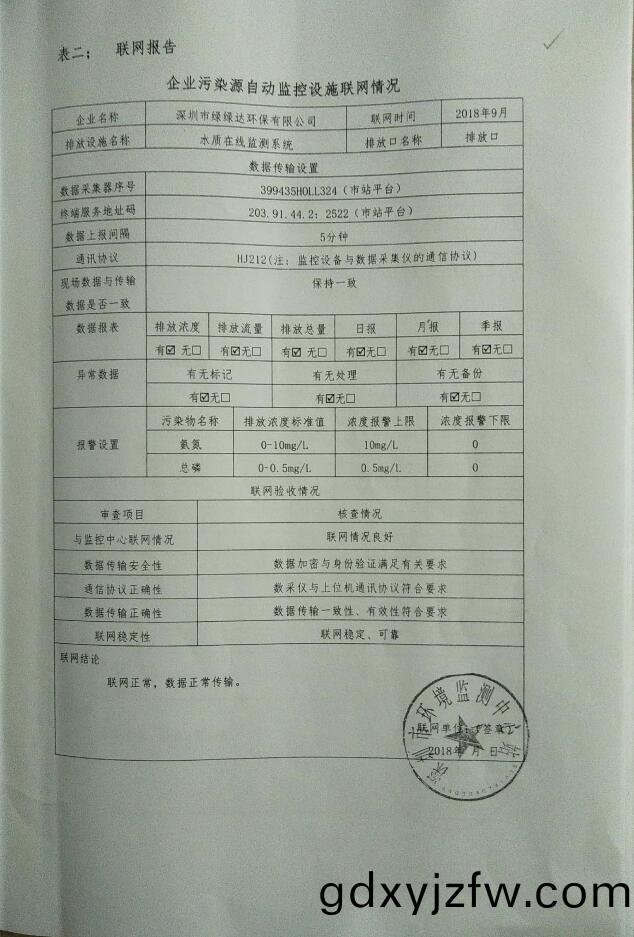 表二； 联网报告
企业污染源自动监控设施联网情况
企业名称 深圳市绿绿达环保有限公司 联网时间 2018年9月
排放设施名称 水质在线监测系统 排放口名称 排放口
数据传输设置
数据采集器序号 399435HOLL324（市站平台）
终端服务地址码 203.91.44.2：2522（市站平台）
数据上报间隔 5分钟
通讯协议 HJ212(注：监控设备与数据采集仪的通信协议)
现场数据与传输数据是否一致 保持一致
数据报表 排放浓度 排放流量 排放总量 日报 月报 季报
有☑ 无□ 有☑无□ 有☑ 无□ 有☑无□ 有☑无□ 有☑无□
异常数据 有无标记 有无处理 有无备份
有☑无□ 有☑无□ 有☑无□
报警设置 污染物名称 排放浓度标准值 浓度报警上限 浓度报警下限
氨氮 0-10mg/L 10mg/L 0
总磷 0-0.5mg/L 0.5mg/L 0
联网验收情况
审查项目 核查情况
与监控中心联网情况 联网情况良好
数据传输安全性 数据加密与身份验证满足有关要求
通信协议正确性 数采仪与上位机通讯协议符合要求
数据传输正确性 数据传输一致性、有效性符合要求
联网稳定性 联网稳定、可靠
联网结论
联网正常，数据正常传输。
深圳市环境监测中心站
联网单位：（签章）
2018年 月 日
gdxyjzfw.com